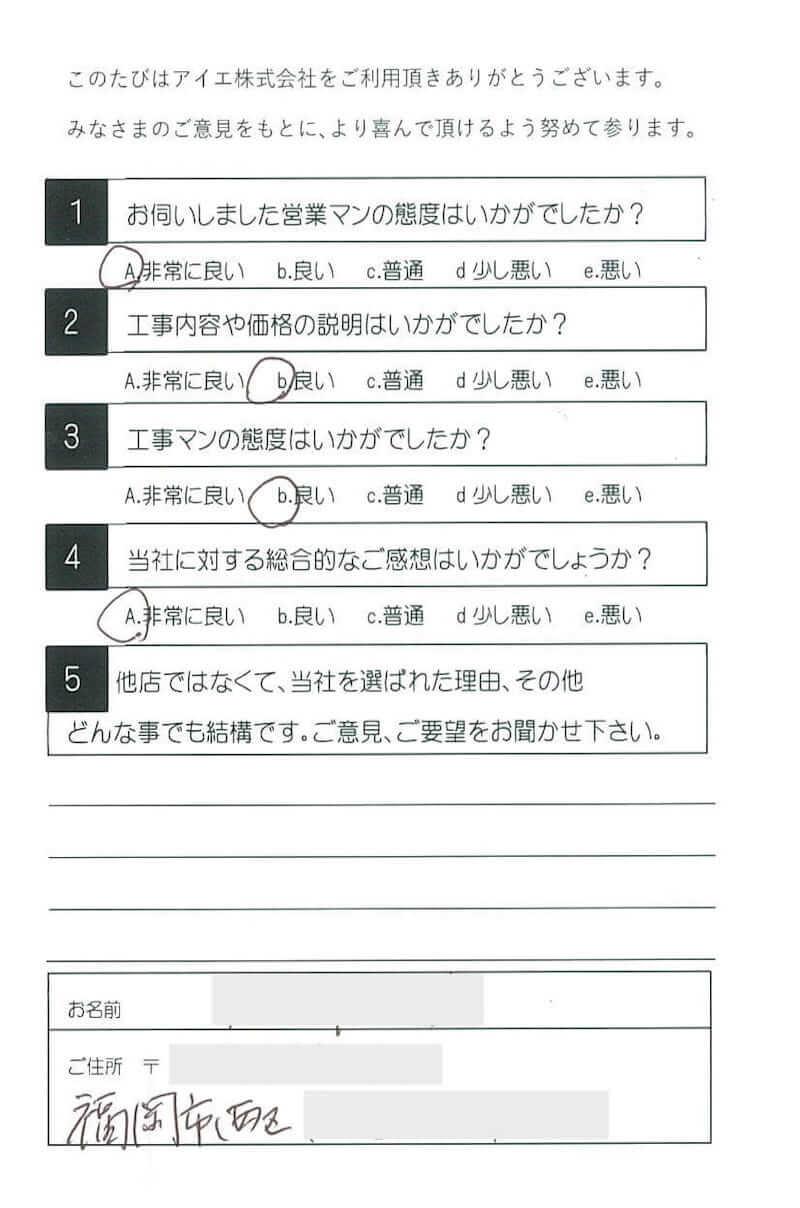 このたびはアイエ株式会社をご利用頂きありがとうございます。
みなさまのご意見をもとに、より喜んで頂けるよう努めて参ります。
1 お伺いしました営業マンの態度はいかがでしたか？
A.非常に良い b.良い c.普通 d 少し悪い e.悪い
2 工事内容や価格の説明はいかがでしたか？
A.非常に良い b.良い c.普通 d 少し悪い e.悪い
3 工事マンの態度はいかがでしたか？
A.非常に良い b.良い c.普通 d 少し悪い e.悪い
4 当社に対する総合的なご感想はいかがでしょうか？
A.非常に良い b.良い c.普通 d 少し悪い e.悪い
5 他店ではなくて、当社を選ばれた理由、その他
どんな事でも結構です。ご意見、ご要望をお聞かせ下さい。
お名前
ご住所 〒
福岡市西区